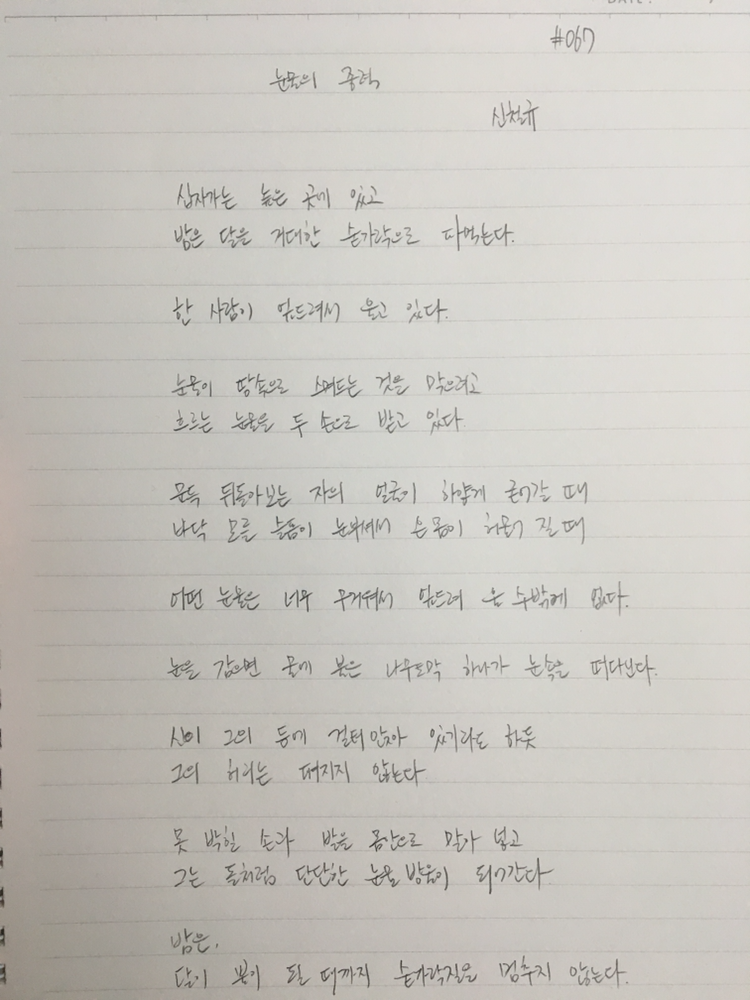 #067
눈물의 중력
신철규
십자가는 높은 곳에 있고
밤은 달을 거대한 숟가락으로 파먹는다.
한 사람이 엎드려서 울고 있다.
눈물이 땅속으로 스며드는 것을 막으려고
흐르는 눈물을 두 손으로 받고 있다.
문득 뒤돌아보는 자의 얼굴이 하얗게 굳어갈 때
바닥 모를 슬픔이 눈부셔서 온몸이 허물어 질 때
어떤 눈물은 너무 무거워서 엎드려 울 수밖에 없다.
눈을 감으면 물에 불은 나무토막 하나가 눈 속을 떠다닌다.
신이 그의 등에 걸터 앉아 있기라도 하듯
그의 허리는 펴지지 않는다
못 박힐 손과 발을 몸안으로 말아 넣고
그는 돌처럼 단단한 눈물 방울이 되어간다
밤은,
달이 뼈가 될 때까지 숟가락질을 멈추지 않는다.